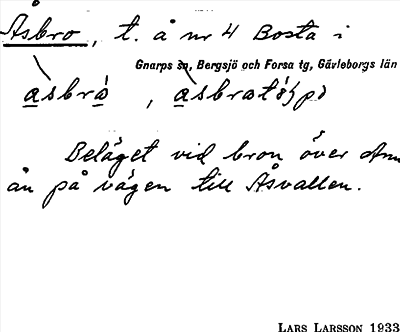 Åsbro, t. å nr 4 Bosta i
Gnarps sn, Bergsjö och Forsa tg, Gävleborgs län
Beläget vid bron över
ån på vägen till Åsvallen.
LARS LARSSON 1933